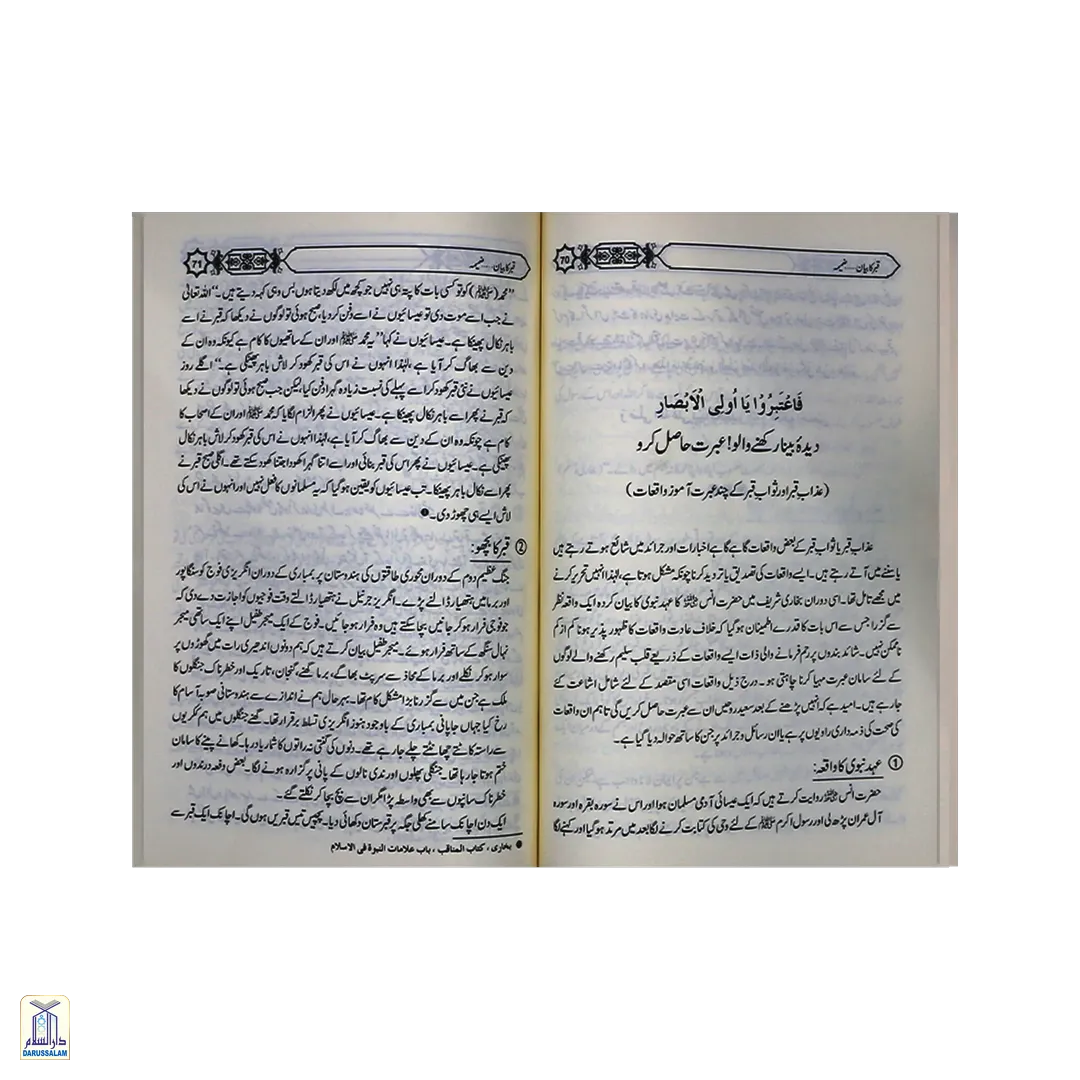 قبر کا بیان.....ضمیمہ
70
فَاعْتَبِرُوْا یَا اُولِی الْاَبْصَارِ
دیدۂ بینا رکھنے والو! عبرت حاصل کرو
(عذاب قبر اور ثواب قبر کے چند عبرت آموز واقعات)
عذاب قبر یا ثواب قبر کے بعض واقعات گاہے گاہے اخبارات اور جرائد میں شائع ہوتے رہتے ہیں
یا سننے میں آتے رہتے ہیں۔ ایسے واقعات کی تصدیق یا تردید کرنا چونکہ مشکل ہوتا ہے، لہٰذا انہیں تحریر کرنے
میں مجھے تامل تھا۔ اسی دوران بخاری شریف میں حضرت انس ؓ کا عہد نبوی کا بیان کردہ ایک واقعہ نظر
سے گزرا جس سے اس بات کا قدرے اطمینان ہوگیا کہ خلاف عادت واقعات کا ظہور پذیر ہونا کم از کم
ناممکن نہیں۔ شائد بندوں پر رحم فرمانے والی ذات ایسے واقعات کے ذریعے قلب سلیم رکھنے والے لوگوں
کے لئے سامان عبرت مہیا کرنا چاہتی ہو۔ درج ذیل واقعات اسی مقصد کے لئے شامل اشاعت کئے
جارہے ہیں۔ امید ہے کہ انہیں پڑھنے کے بعد سعید روحیں ان سے عبرت حاصل کریں گی تاہم ان واقعات
کی صحت کی ذمہ داری راویوں پر ہے یا ان رسائل و جرائد پر جن کا ساتھ حوالہ دیا گیا ہے۔
① عہد نبوی کا واقعہ:
حضرت انس ؓ روایت کرتے ہیں کہ ایک عیسائی آدمی مسلمان ہوا اور اس نے سورہ بقرہ اور سورہ
آل عمران پڑھ لی اور رسول اکرم ﷺ کے لئے وحی کی کتابت کرنے لگا بعد میں مرتد ہوگیا اور کہنے لگا
قبر کا بیان.....ضمیمہ
71
"محمد (ﷺ) کو تو کسی بات کا پتہ ہی نہیں جو کچھ میں لکھ دیتا ہوں بس وہی کہہ دیتے ہیں۔" اللہ تعالیٰ
نے جب اسے موت دی تو عیسائیوں نے اسے دفن کر دیا، صبح ہوئی تو لوگوں نے دیکھا کہ قبر نے اسے
باہر نکال پھینکا ہے۔ عیسائیوں نے کہا "یہ محمد ﷺ اور ان کے ساتھیوں کا کام ہے کیونکہ وہ ان کے
دین سے بھاگ کر آیا ہے، لہٰذا انہوں نے اس کی قبر کھود کر لاش باہر پھینکی ہے۔" اگلے روز
عیسائیوں نے نئی قبر کھود کر اسے پہلے کی نسبت زیادہ گہرا دفن کیا، لیکن جب صبح ہوئی تو لوگوں نے دیکھا
کہ قبر نے پھر اسے باہر نکال پھینکا ہے۔ عیسائیوں نے پھر الزام لگایا کہ محمد ﷺ اور ان کے اصحاب کا
کام ہے چونکہ وہ ان کے دین سے بھاگ کر آیا ہے، لہٰذا انہوں نے اس کی قبر کھود کر لاش باہر نکال
پھینکی ہے۔ عیسائیوں نے پھر اس کی قبر بنائی اور اسے اتنا گہرا کھودا جتنا کھود سکتے تھے۔ اگلی صبح قبر نے
پھر اسے نکال باہر پھینکا۔ تب عیسائیوں کو یقین ہوگیا کہ یہ مسلمانوں کا فعل نہیں اور انہوں نے اس کی
لاش ایسے ہی چھوڑ دی۔ ❶
② قبر کا بچھو:
جنگ عظیم دوم کے دوران محوری طاقتوں کی ہندوستان پر بمباری کے دوران انگریزی فوج کو سنگاپور
اور برما میں ہتھیار ڈالنے پڑے۔ انگریز جرنیل نے ہتھیار ڈالتے وقت فوجیوں کو اجازت دے دی کہ
جو فوجی فرار ہو کر جانیں بچا سکتے ہیں وہ فرار ہو جائیں۔ فوج کے ایک میجر طفیل اپنے ایک ساتھی میجر
نہال سنگھ کے ساتھ فرار ہوئے۔ میجر طفیل بیان کرتے ہیں کہ ہم دونوں اندھیری رات میں گھوڑوں پر
سوار ہو کر نکلے اور برما کے محاذ سے سرپٹ بھاگے، برما گھنے، گنجان، تاریک اور خطرناک جنگلوں کا
ملک ہے جن میں سے گزرنا بڑا مشکل کام تھا۔ بہر حال ہم نے اندازے سے ہندوستانی صوبہ آسام کا
رخ کیا جہاں جاپانی بمباری کے باوجود ہنوز انگریزی تسلط برقرار تھا۔ گھنے جنگلوں میں ہم کھریوں
سے راستہ کاٹتے چھانٹتے چلے جارہے تھے۔ دنوں کی گنتی نہ راتوں کا شمار یاد رہا۔ کھانے پینے کا سامان
ختم ہوتا جا رہا تھا۔ جنگلی پھلوں اور ندی نالوں کے پانی پر گزارہ ہونے لگا۔ بعض وقعہ درندوں اور
خطرناک سانپوں سے بھی واسطہ پڑا مگر ان سے بچ بچا کر نکلتے گئے۔
ایک دن اچانک سامنے کھلی جگہ پر قبرستان دکھائی دیا۔ پچیس تیس قبریں ہوں گی۔ اچانک ایک قبر سے
❶ بخاری ، کتاب المناقب ، باب علامات النبوة فی الاسلام
دار السلام
DARUSSALAM